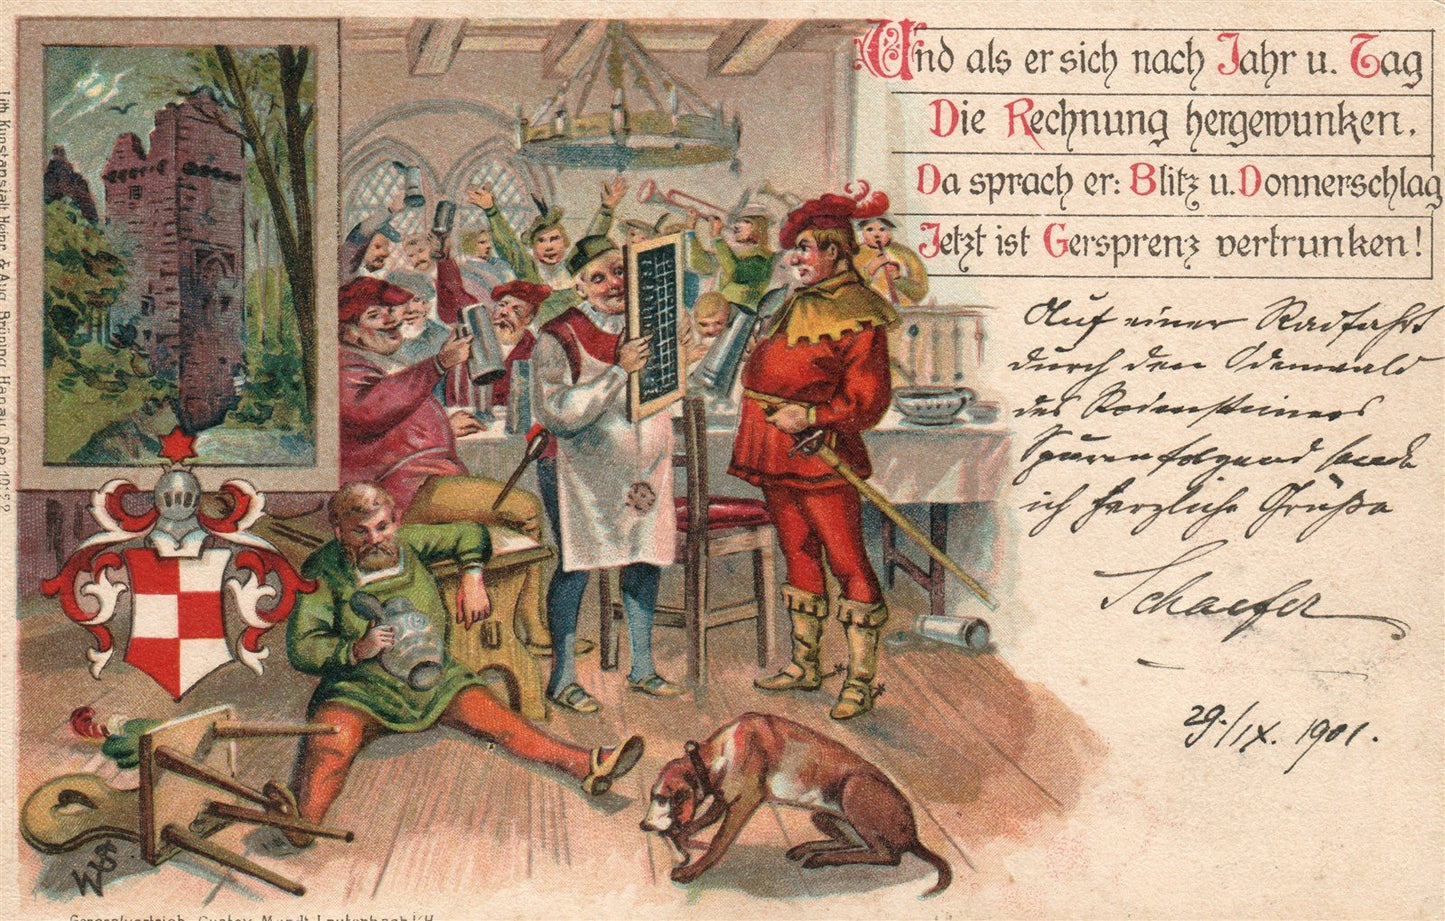 Und als er sich nach Jahr u. Tag
Die Rechnung hergewunken,
Da sprach er: Blitz u. Donnerschlag
Jetzt ist Gersprenz vertrunken!
Auf einer Radfahrt
durch den Odenwald
des Rodensteiners
Spuren folgend sende
ich herzliche Grüße
Schaefer
29./IX. 1901.
Lith. Kunstanstalt Heine & Aug. Brüning, Hanau. Dep. 10:22
Generalvertrieb Gustav Mandt Lauterbach